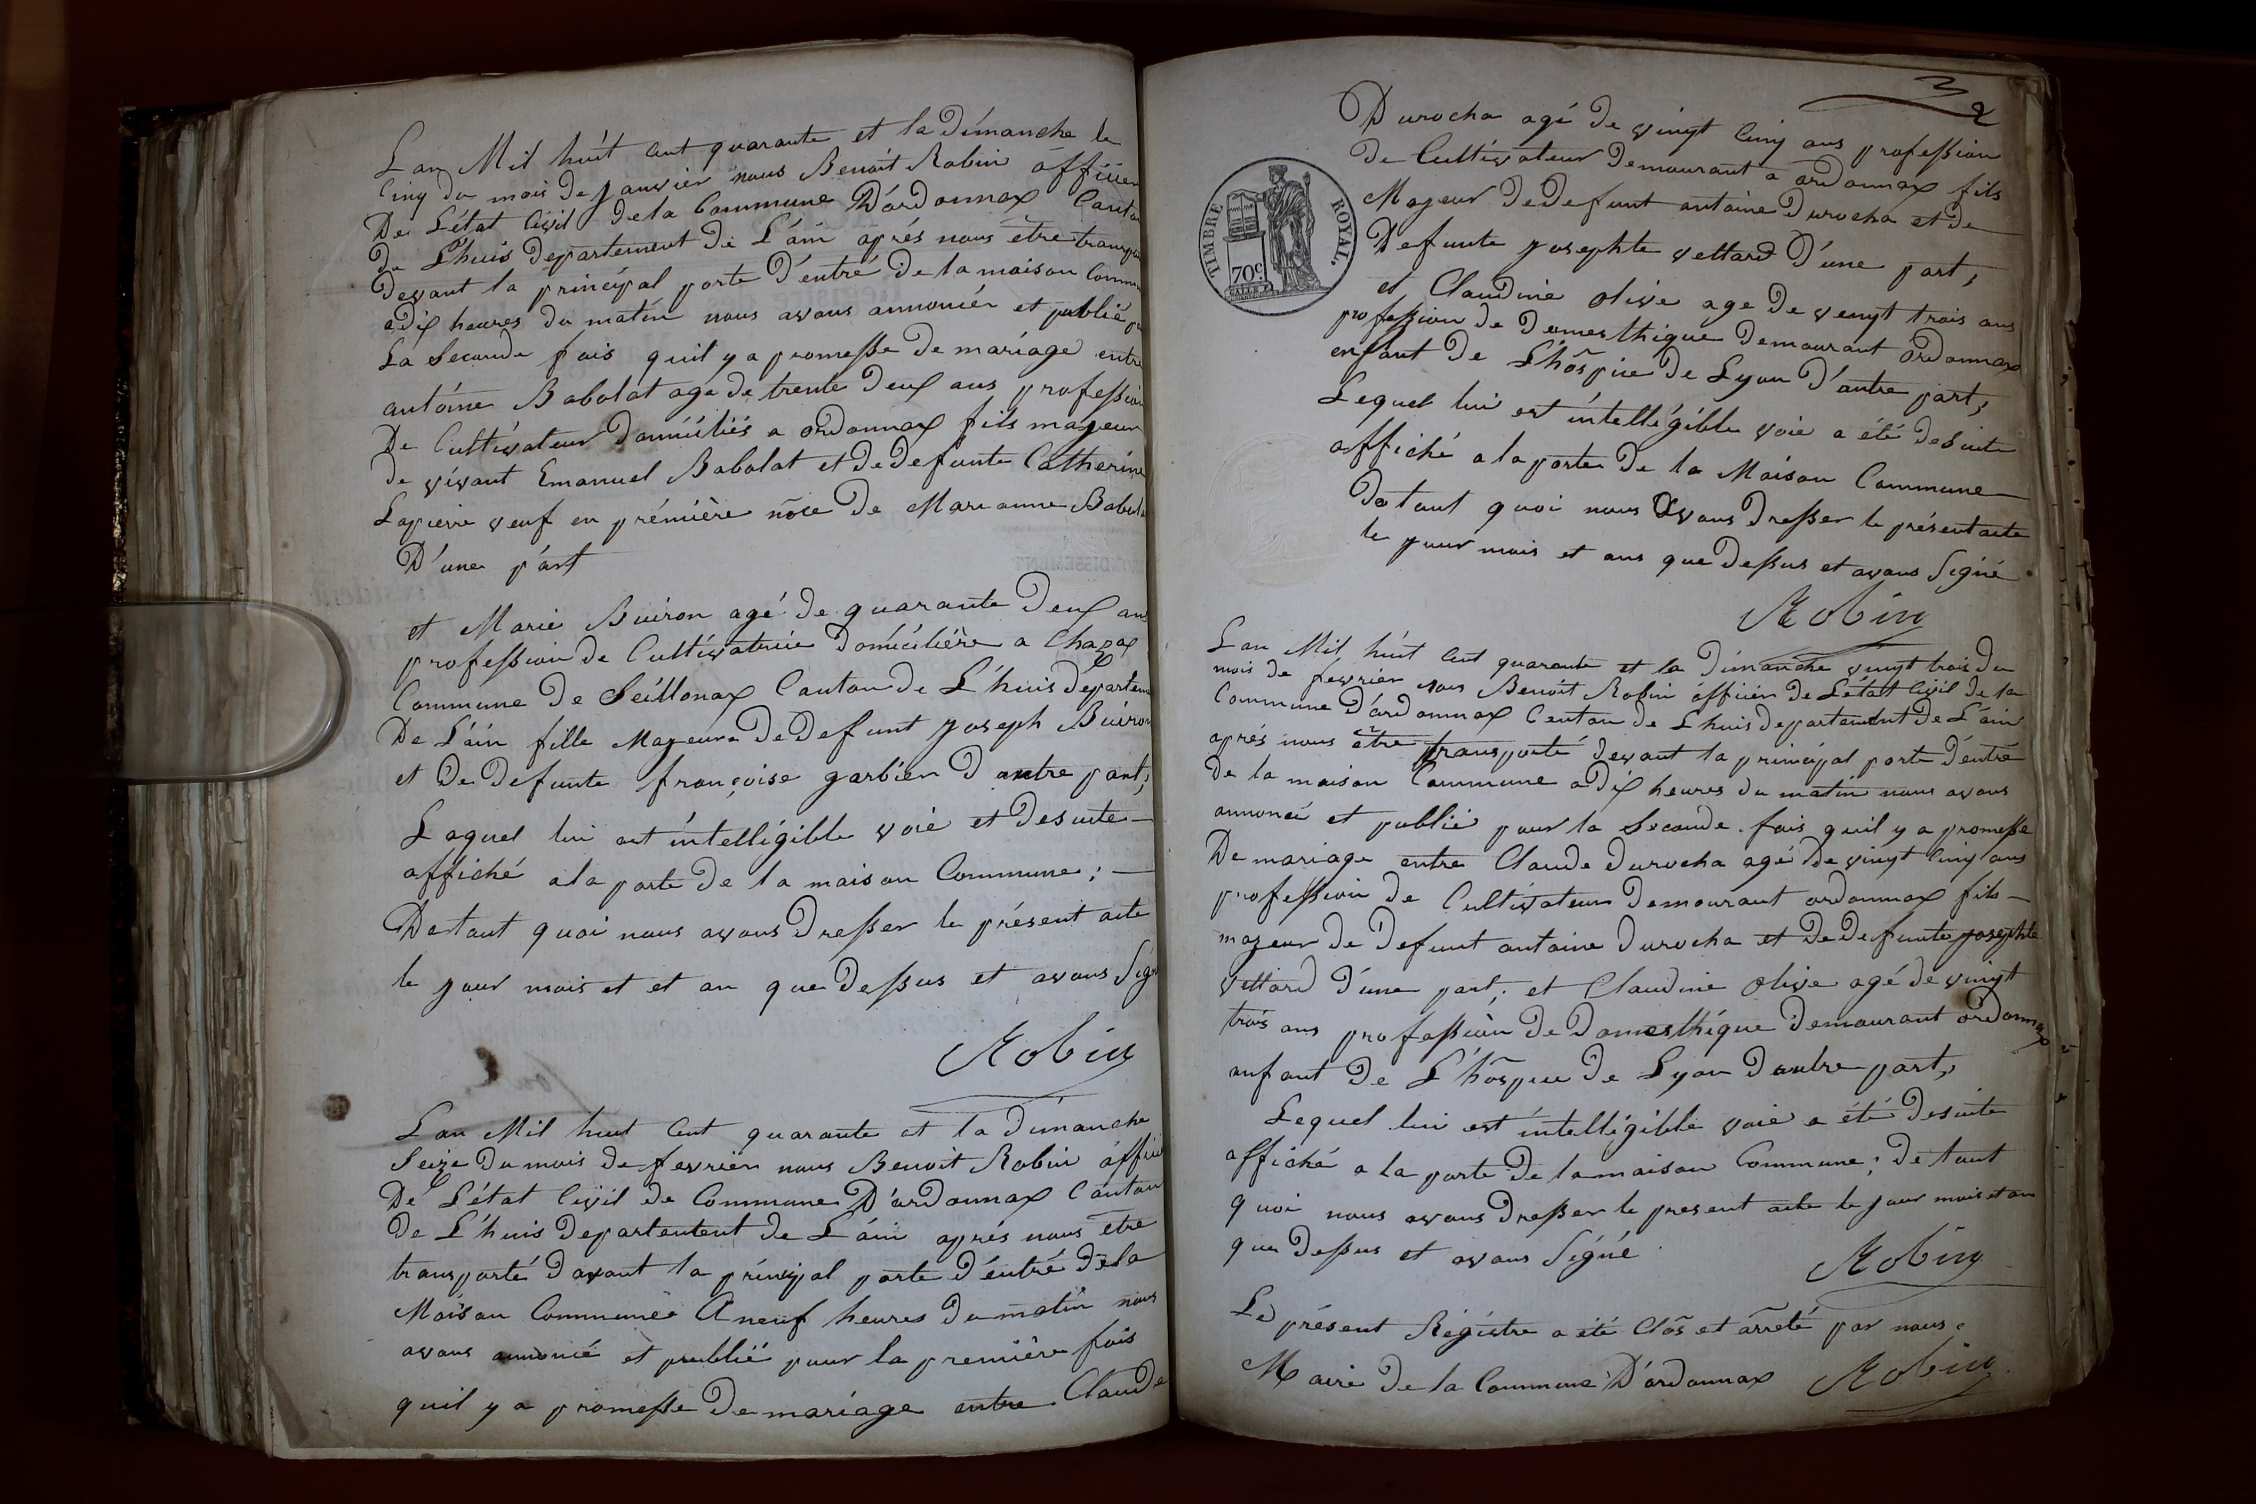 Lan Mil huit cent quarante et la dimanche le
cinq du mois de janvier nous Benoit Robin officier
De L'état civil de la Commune D'ardonnax Canton
de L'huis departement de L'ain aprés nous être transpor
devant la principal porte D'entré de la maison Commu
a dix heures du matin nous avons annoncér et publié pr
La Seconde fois quil y a promesse de mariage entre
antoine Babolat age de trente deux ans profession
De Cultivateur domiciliés a ordonnax fils majeur
de vivant Emanuel Babolat et de defunte Catherine
Lapierre veuf en prémière nôce de Marianne Babola
D'une part
et Marie Buiron agé de quarante deux ans
profession de Cultivatrice domicilière a Chazax
Commune de Seillonax Canton de L'huis departem
De L'ain fille Majeure de defunt joseph Buiron
et De defunte françoise garbien D autre part;
Laquel lui est intelligible voie et desuite
affiché a la porte de la maison Commune;
Detout quoi nous avons dresser le présent acte
le jour mois et et an que dessus et avons Signé
Robin
Lan Mil huit cent quarante et la dimanche
Seize du mois de fevrier nous Benoit Robin officie
De L'état civil de Commune D'ardonnax Canton
de L'huis departentent de L'ain aprés nous être
transporté davant la principal porte d'éntré de la
Maison Commune A neuf heures du matin nous
avons annoncé et publié pour la première fois
quil y a promesse de mariage entre Claude
32
Durocha agé de vingt cinq ans profession
de Cultivateur demourant a ordonnax fils
Majeur de defunt antoine durocha et de
Defunte josephte vettard d'une part,
et Claudine olive age de vengt trois ans
profession de domesthique demourant ordonnax
enfant de L'hôspice de Lyon d'autre part,
Lequel lui est intelligible voie a été desuite
affiché a la porte de la Maison Commune
Detout quoi nous Avons dresser le présent acte
le jour mois et ans que dessus et avons Signé
Robin
TIMBRE ROYAL.
70c
Lan Mil huit cent quarante et la dimanche vingt trois du
mois de fevrier nous Benoit Robin officier de L'état civil de la
Commune D'ardonnax Canton de L'huis departement de L'ain
aprés nous être transporté devant la principal porte d'entré
de la maison Commune a dix heures du matin nous avons
annoncé et publié pour la Seconde fois quil y a promesse
De mariage entre Claude durocha agé de vingt cinq ans
profession de Cultivateur demourant ordonnax fils
majeur de defunt antoine durocha et de defunte josephte
vettard d'une part; et Claudine olive agé de vingt
trois ans profession de domesthique demourant ordonnax
anfant de L'hôspice de Lyon d autre part,
Lequel lui est intelligible voie a été desuite
affiché a la porte de la maison Commune; de tout
quoi nous avons dresser le present acte le jour mois et an
que dessus et avons Signé
Robin
Le présent Régistre a été Clôs et arrêté par nous
Maire de la Commune D'ardonnax Robin